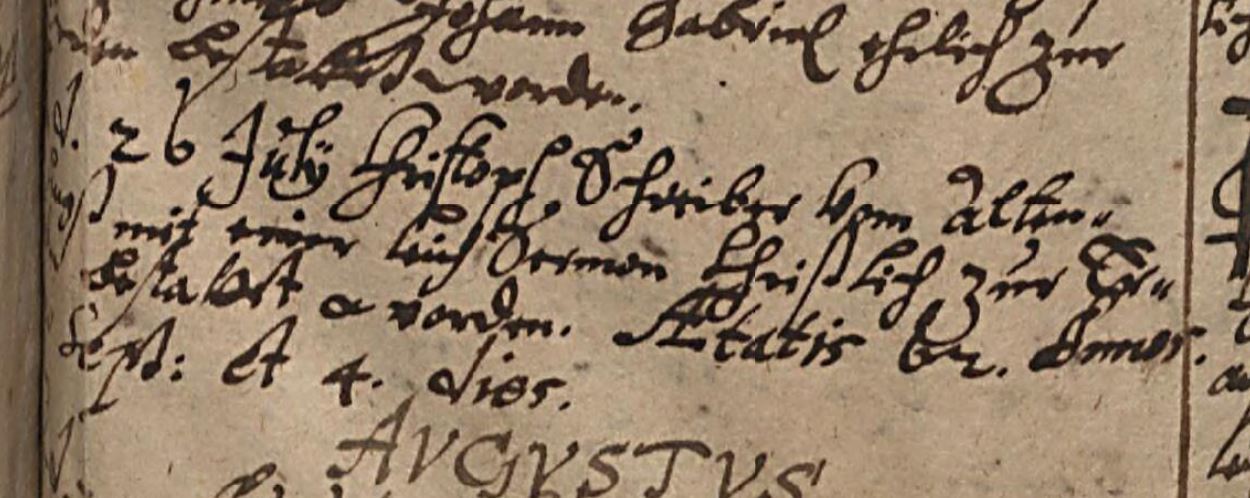 Johann Gabriel ehrlich zur
bestattet worden.
26 July Christoph Schreiber vom Alten-
mit einer leich Sermon Christlich zur Er-
bestattet worden. Ætatis 62. Annos.
et 4. dies.
AVGVSTVS